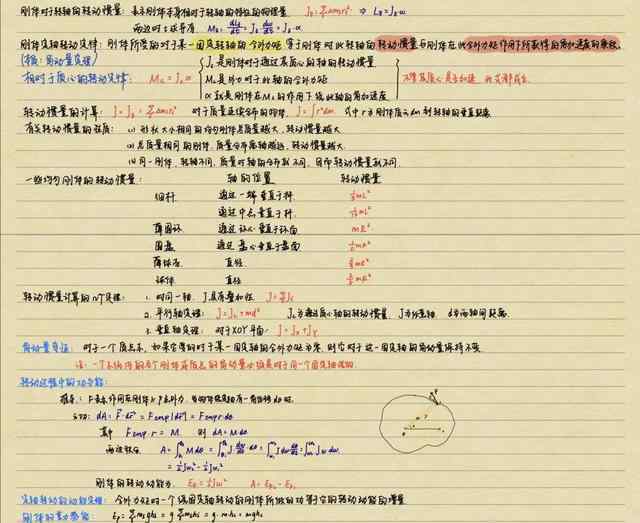 刚体对于转轴的转动惯量：表示刚体本身相对于转轴的特征的物理量 J_z = ΣΔm_i r_i² ⇒ L_z = J_z ω
两边对t求导有 M_z = dL_z/dt = J_z dω/dt = J_z α
刚体定轴转动定律：刚体所受的对于某一固定转轴的合外力矩等于刚体对此转轴的转动惯量与刚体在此合外力矩作用下所获得的角加速度的乘积。
(核：角动量定理)
相对于质心的转动定律： M_c = J_c α
J_c 是刚体对于通过其质心的轴的转动惯量
M_c 是外力对于此轴的合外力矩
α 就是刚体在M_c的作用下绕此轴的角加速度
不管其质心是否加速，此式都成立
转动惯量的计算： J = J_z = ΣΔm_i r_i² 对于质量连续分布的物体， J = ∫r²dm. 式中r为刚体质元dm到转轴的垂直距离
有关转动惯量的性质： (1) 形状大小相同的均匀刚体总质量越大，转动惯量越大
(2) 总质量相同的刚体，质量分布离轴越远，转动惯量越大
(3) 同一刚体，转轴不同，质量对轴的分布就不同，因而转动惯量就不同．
一些均匀刚体的转动惯量： 轴的位置 转动惯量
细杆 通过一端垂直于杆 ⅓mL²
通过中点垂直于杆 1/12 mL²
薄圆环 通过环心垂直于环面 mR²
圆盘 通过盘心垂直于盘面 ½mR²
薄球壳 直径 ⅔mR²
球体 直径 ⅖mR²
转动惯量计算的几个定理： 1. 对同一轴，J具有叠加性 J = ΣJ_i
2. 平行轴定理： J = J_c + md² J_c为通过质心轴的转动惯量 J为任意轴 d为两轴间距离
3. 垂直轴定理： 对于XOY平面： J = J_x + J_y
角动量守恒： 对于一个质点系，如果它受的对于某一固定轴的合外力矩为零，则它对于这一固定轴的角动量保持不变
注：一个系统内的各个刚体或质点的角动量必须是对于同一个固定轴说的
转动过程中的功与能：
推导： F表示作用在刚体上P点外力．当刚体绕定轴有一角位移dθ时．
dA = F·dr = F|dr| = F r dθ
其中 F r = M 则 dA = Mdθ
两边积分 A = ∫Mdθ = ∫J dω/dt dθ = ∫J dω = ∫Jω dω
= ½Jω₂² − ½Jω₁²
刚体的转动动能为 E_k = ½Jω² A = E_k₂ − E_k₁
定轴转动的动能定理： 合外力矩对一个绕固定轴转动的刚体所做的功等于它的转动动能的增量
刚体的重力势能： E_p = ΣΔm_i g h_i = g ΣΔm_i h_i = g·m h_c = mgh_c